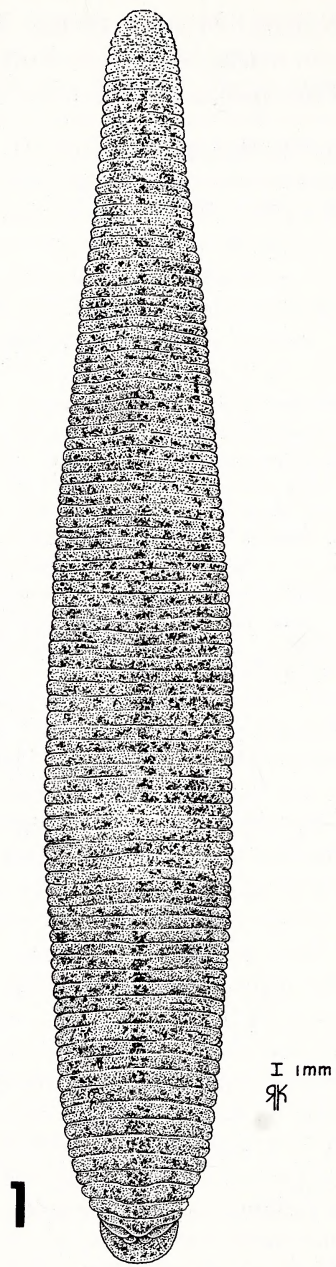 I 1mm
RK
1